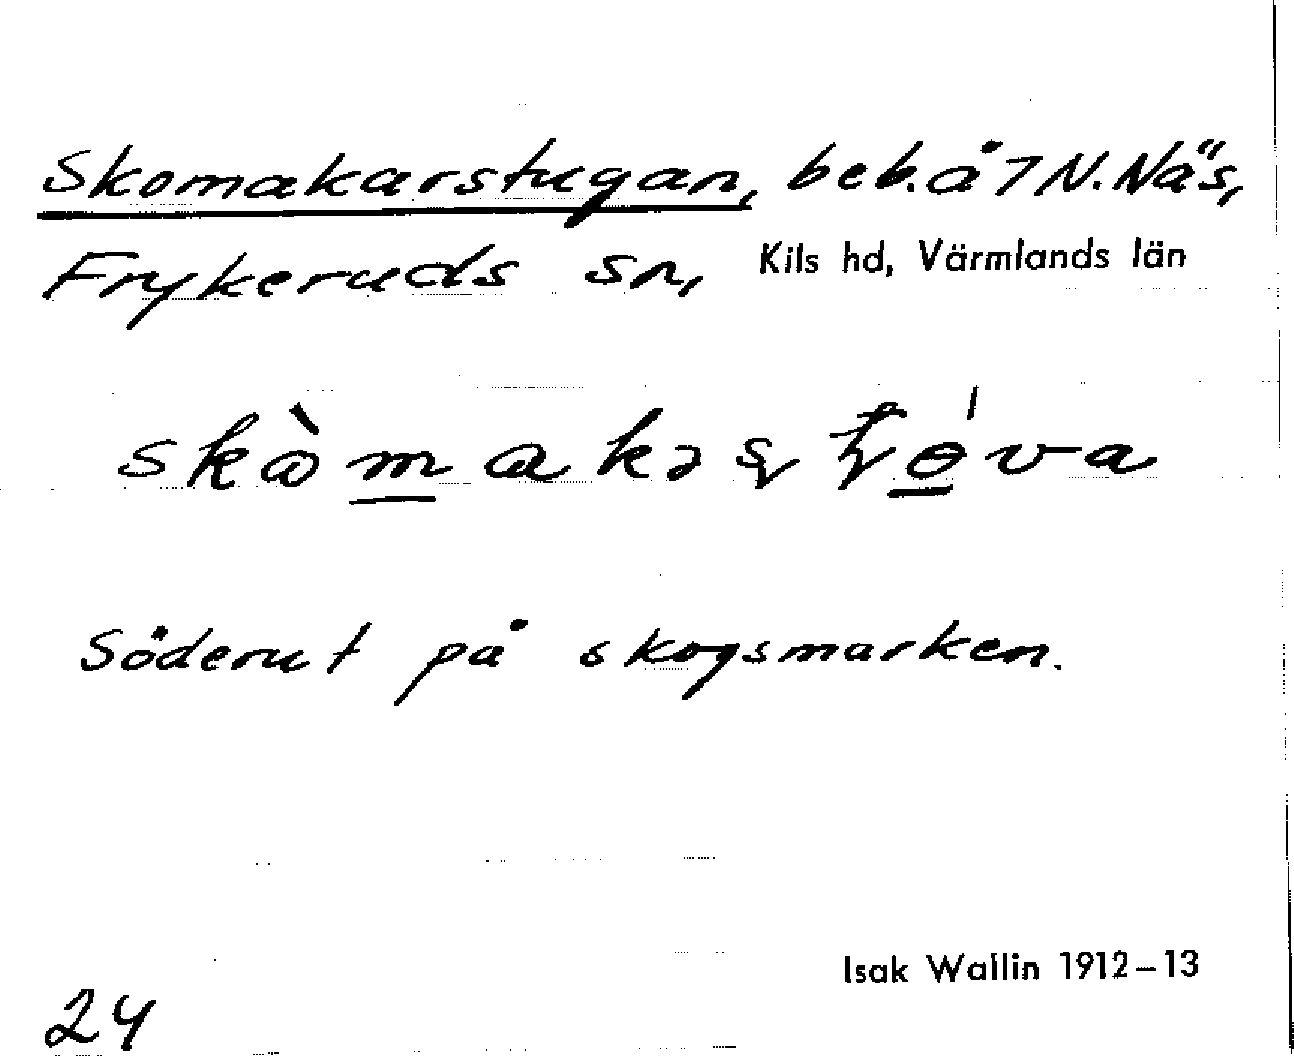 Skomakarstugan, beb. å 7 N. Näs,
Frykeruds sn, Kils hd, Värmlands län
Söderut på skogsmarken.
Isak Wallin 1912–13
24